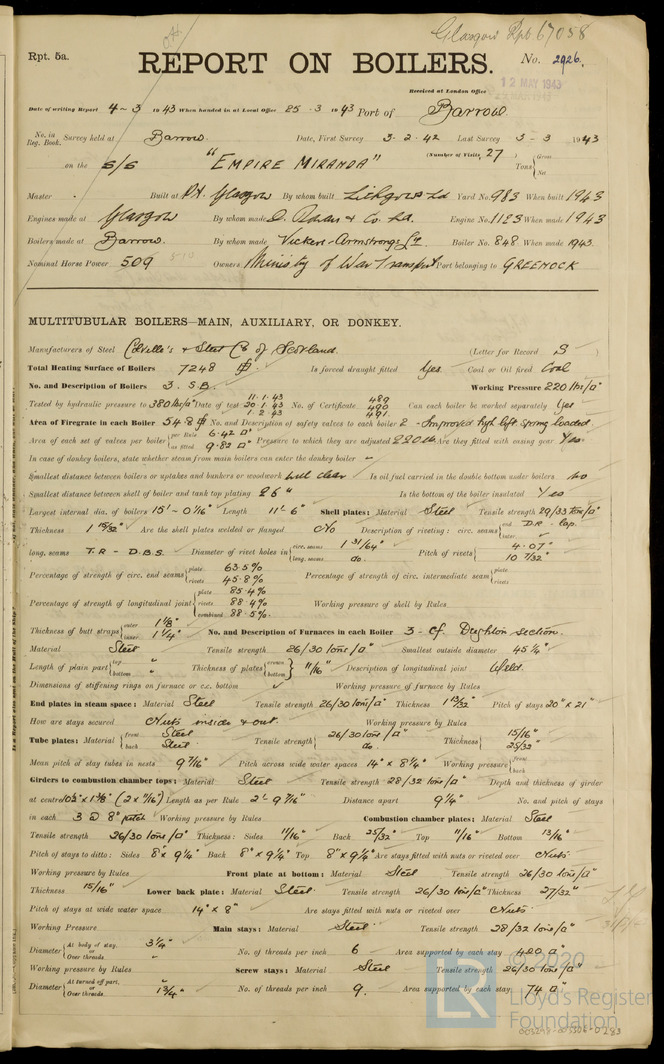 Glasgow Rpt. 67058
Rpt. 5a.
REPORT ON BOILERS.
No. 2926.
Received at London Office
12 MAY 1943
Date of writing Report 4-3 1943 When handed in at Local Office 25-3 1943 Port of Barrow
No. in Reg. Book. Survey held at Barrow. Date, First Survey 3-2-42 Last Survey 3-3 1943
on the S/S "EMPIRE MIRANDA" (Number of Visits 27 ) Tons { Gross Net
Master Built at Pt. Glasgow By whom built Lithgows Ld Yard No. 983 When built 1943
Engines made at Glasgow By whom made D. Rowan & Co. Ld. Engine No. 1123 When made 1943
Boilers made at Barrow. By whom made Vickers-Armstrongs Ld. Boiler No. 848 When made 1943
Nominal Horse Power 509 Owners Ministry of War Transport Port belonging to GREENOCK
MULTITUBULAR BOILERS—MAIN, AUXILIARY, OR DONKEY.
Manufacturers of Steel Colville's & Steel Co of Scotland. (Letter for Record S )
Total Heating Surface of Boilers 7248 Is forced draught fitted Yes. Coal or Oil fired Coal
No. and Description of Boilers 3. S.B. Working Pressure 220 lbs/□"
Tested by hydraulic pressure to 380 lbs/□" Date of test 11.1.43 20.1.43 1.2.43 No. of Certificate 489 490 491 Can each boiler be worked separately Yes
Area of Firegrate in each Boiler 54.8 No. and Description of safety valves to each boiler 2 - Improved high lift spring loaded.
Area of each set of valves per boiler { per Rule 6.42 □" as fitted 9.82 □" Pressure to which they are adjusted 220 lb Are they fitted with easing gear Yes.
In case of donkey boilers, state whether steam from main boilers can enter the donkey boiler -
Smallest distance between boilers or uptakes and bunkers or woodwork well clear Is oil fuel carried in the double bottom under boilers No
Smallest distance between shell of boiler and tank top plating 26" Is the bottom of the boiler insulated Yes
Largest internal dia. of boilers 15'-0 1/16" Length 11'-6" Shell plates: Material Steel Tensile strength 29/33 tons/□"
Thickness 1 15/32" Are the shell plates welded or flanged No Description of riveting: circ. seams { end D.R. lap. inter. "
long. seams T.R - D.B.S. Diameter of rivet holes in { circ. seams 1 31/64" long. seams do. Pitch of rivets { 4.07" 10 7/32"
Percentage of strength of circ. end seams { plate 63.5% rivets 45.8% Percentage of strength of circ. intermediate seam { plate rivets
Percentage of strength of longitudinal joint { plate 85.4% rivets 88.4% combined 88.5% Working pressure of shell by Rules
Thickness of butt straps { outer 1 1/8" inner 1 1/4" No. and Description of Furnaces in each Boiler 3 - Cf. Deighton section.
Material Steel Tensile strength 26/30 tons/□" Smallest outside diameter 45 1/4"
Length of plain part { top " bottom " Thickness of plates { crown bottom } 11/16" Description of longitudinal joint Weld.
Dimensions of stiffening rings on furnace or c.c. bottom Working pressure of furnace by Rules
End plates in steam space: Material Steel Tensile strength 26/30 tons/□" Thickness 1 13/32" Pitch of stays 20" x 21"
How are stays secured Nuts inside & out. Working pressure by Rules
Tube plates: Material { front Steel back Steel Tensile strength { 26/30 tons/□" do. Thickness { 15/16" 25/32"
Mean pitch of stay tubes in nests 9 7/16" Pitch across wide water spaces 14" x 8 1/4" Working pressure { front back
Girders to combustion chamber tops: Material Steel Tensile strength 28/32 tons/□" Depth and thickness of girder
at centre 10 1/2" x 1 3/8" (2 x 11/16) Length as per Rule 2'- 9 7/16" Distance apart 9 1/4" No. and pitch of stays
in each 3 @ 8" pitch Working pressure by Rules Combustion chamber plates: Material Steel
Tensile strength 26/30 tons/□" Thickness: Sides 11/16" Back 25/32" Top 11/16" Bottom 13/16"
Pitch of stays to ditto: Sides 8" x 9 1/4" Back 8" x 9 1/4" Top 8" x 9 1/4" Are stays fitted with nuts or riveted over Nuts
Working pressure by Rules Front plate at bottom: Material Steel Tensile strength 26/30 tons/□"
Thickness 15/16" Lower back plate: Material Steel. Tensile strength 26/30 tons/□" Thickness 27/32"
Pitch of stays at wide water space 14" x 8" Are stays fitted with nuts or riveted over Nuts
Working Pressure Main stays: Material Steel Tensile strength 28/32 tons/□"
Diameter { At body of stay, 3 1/4" or Over threads " No. of threads per inch 6 Area supported by each stay 420 □"
Working pressure by Rules Screw stays: Material Steel Tensile strength 26/30 tons/□"
Diameter { At turned off part, " or Over threads 1 3/4" No. of threads per inch 9. Area supported by each stay 74 □"
LR © 2020
Lloyd's Register
Foundation
003298-003306-0283